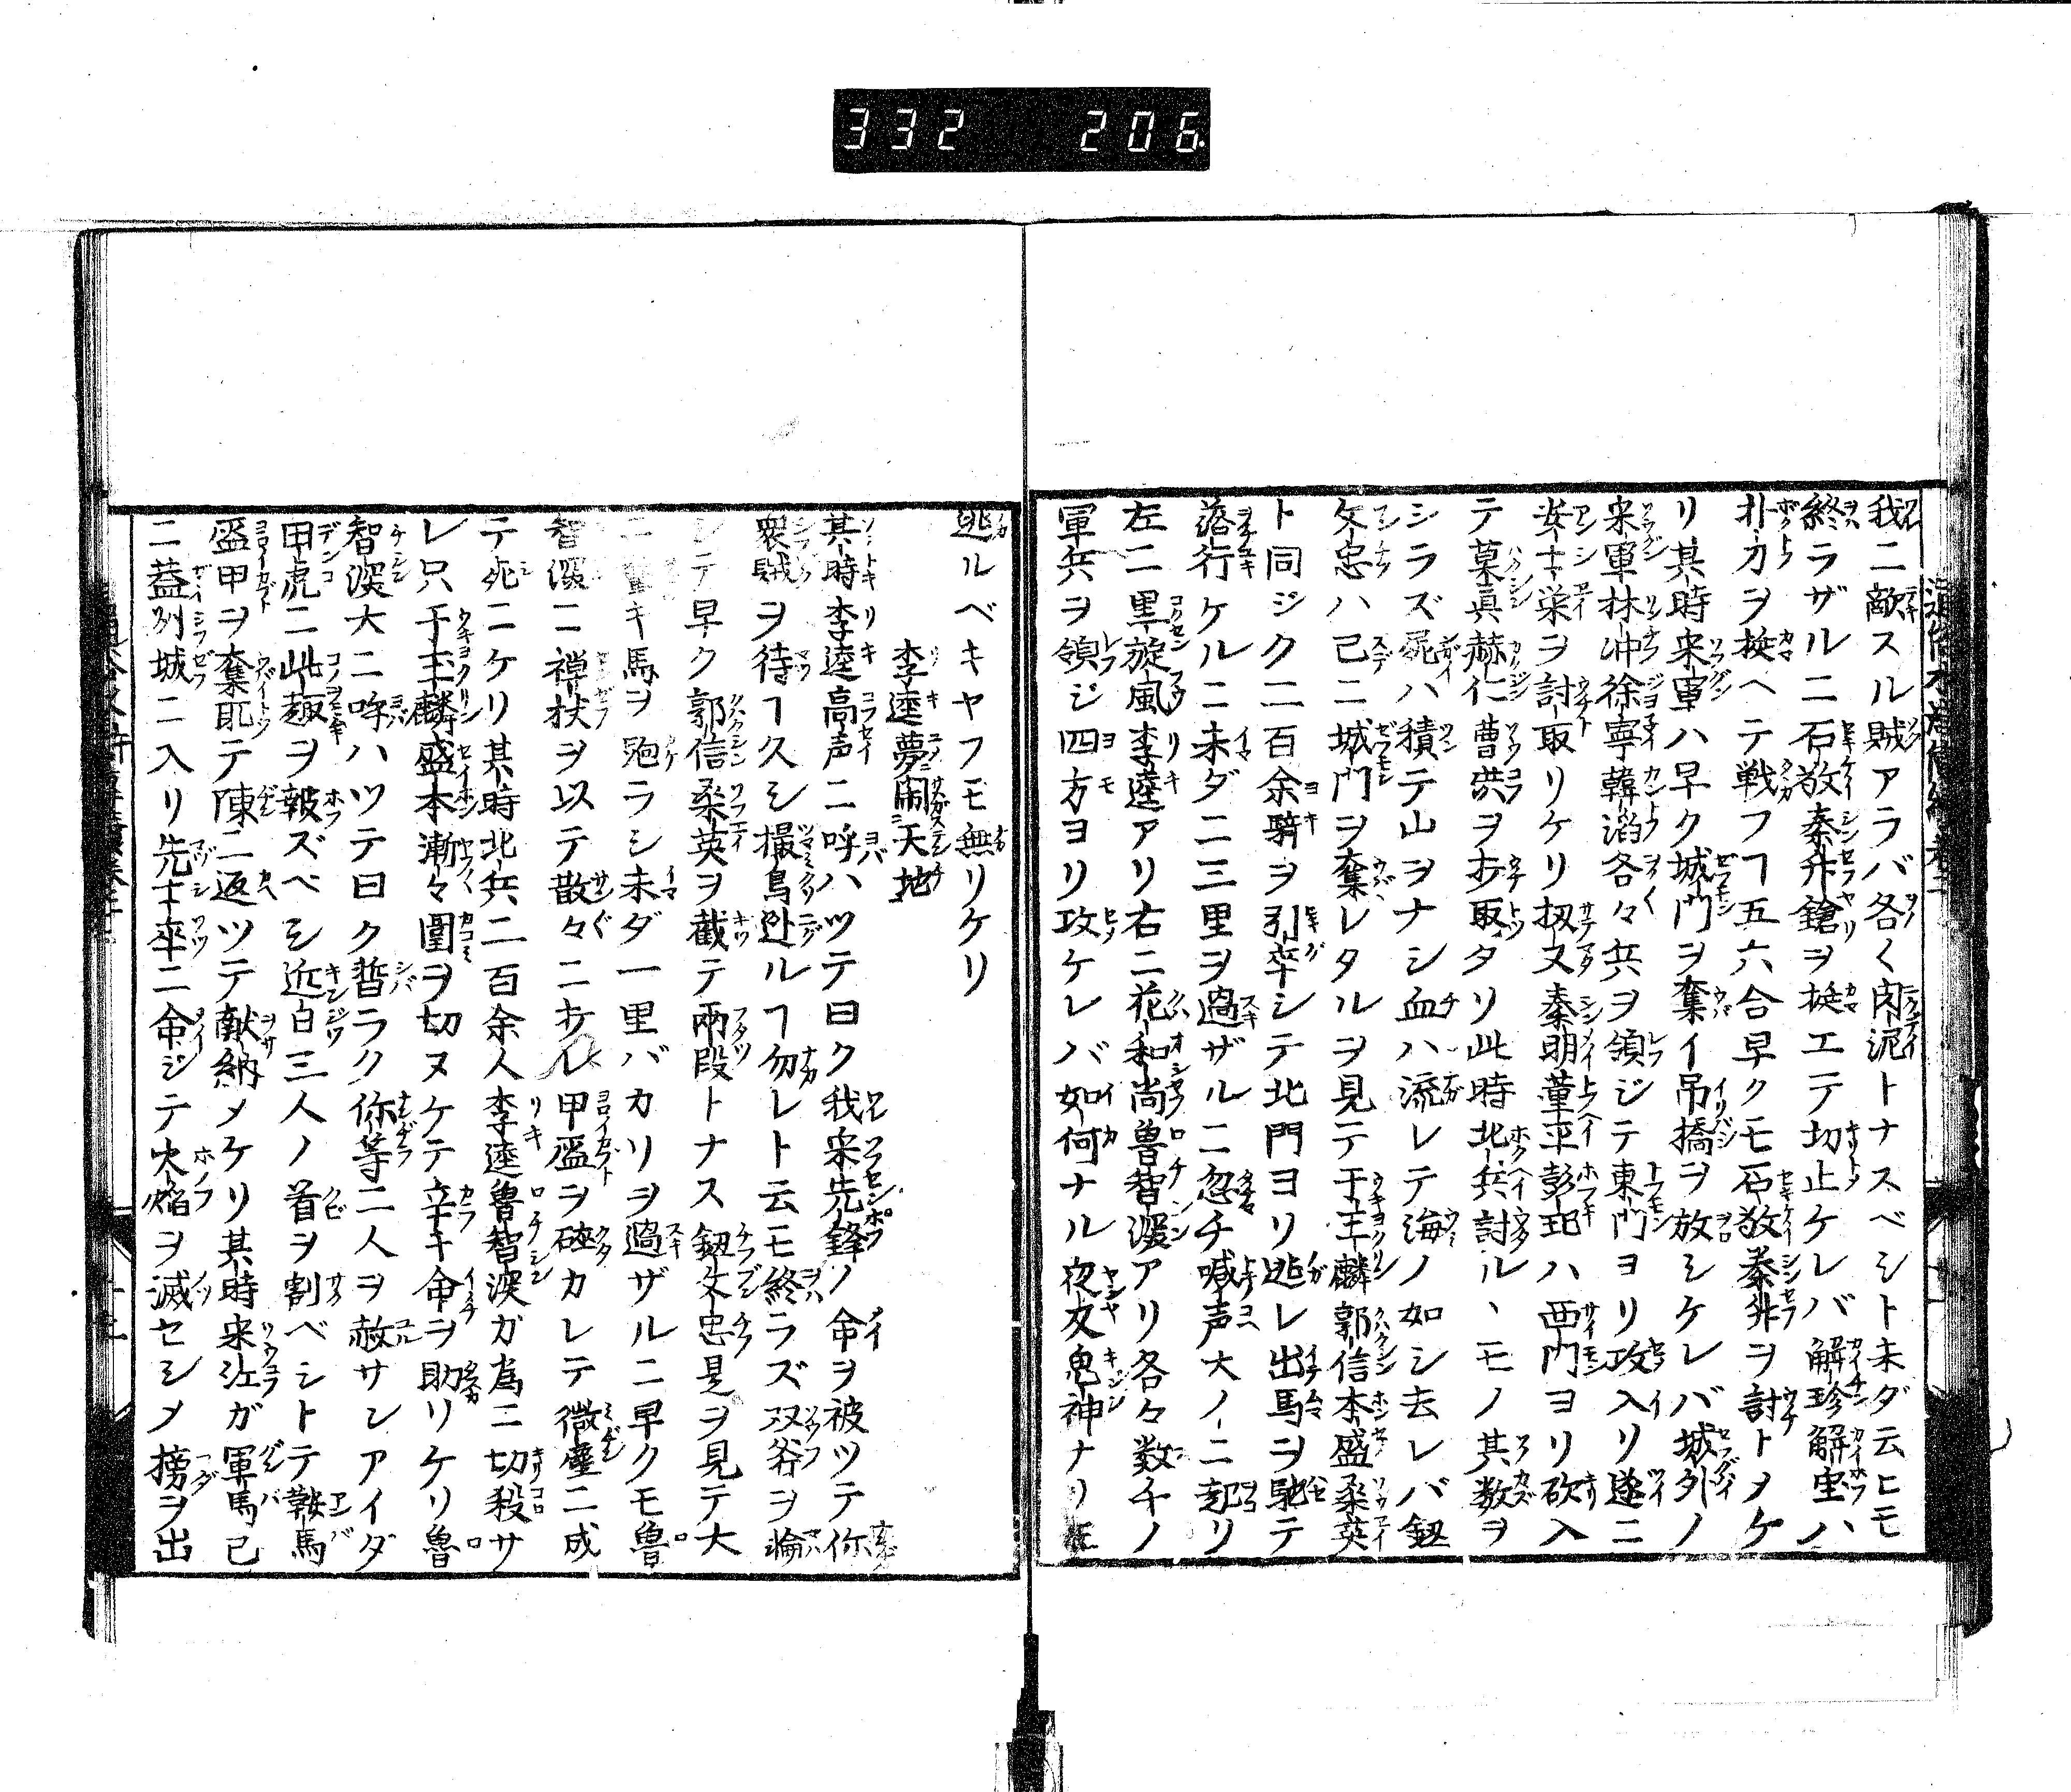 332 206
我ニ敵スル賊アラバ各々肉泥トナスベシト未ダ云ヒモ
終ラザルニ石敬秦升鎗ヲ挺エテ切止ケレバ解珍解宝ハ
朴刀ヲ挺ヘテ戦フヿ五六合早クモ石敬秦升ヲ討トメケ
リ其時宋軍ハ早ク城門ヲ奪イ吊橋ヲ放シケレバ城外ノ
宋軍林冲徐寧韓滔各々兵ヲ領ジテ東門ヨリ攻入リ遂ニ
安士栄ヲ討取リケリ扨又秦明董平彭玘ハ西門ヨリ砍入
テ莫真赫仁曹洪ヲ打取タリ此時北兵討ルヽモノ其数ヲ
シラズ屍ハ積テ山ヲナシ血ハ流レテ海ノ如シ去レバ鈕
文忠ハ已ニ城門ヲ奪レタルヲ見テ于玉麟郭信本盛桑英
ト同ジク二百余騎ヲ引卒シテ北門ヨリ逃レ出馬ヲ馳テ
落行ケルニ未ダ二三里ヲ過ザルニ忽チ喊声大ノニ起リ
左ニ黒旋風李逵アリ右ニ花和尚魯智深アリ各々数千ノ
軍兵ヲ領ジ四方ヨリ攻ケレバ如何ナル夜叉鬼神ナリ
逃ルベキヤフモ無リケリ
李逵夢閙天地
其時李逵高声ニ呼ハツテ曰ク我宋先鋒ノ命ヲ被ツテ你
衆賊ヲ待ヿ久シ撮鳥迯ルヿ勿レト云モ終ラズ双斧ヲ輪
シテ早ク郭信桑英ヲ截テ兩段トナス鈕文忠是ヲ見テ大
ニ驚キ馬ヲ跑ラシ未ダ一里バカリヲ過ザルニ早クモ魯
智深ニ禅杖ヲ以テ散々ニ打レ甲盔ヲ砕カレテ微塵ニ成
テ死ニケリ其時北兵二百余人李逵魯智深ガ為ニ切殺サ
レ只于玉麟盛本漸々圍ヲ切ヌケテ辛キ命ヲ助リケリ魯
智深大ニ呼ハツテ曰ク暫ラク你等二人ヲ赦サレアイダ
田虎ニ此趣ヲ報ズベシ近日三人ノ首ヲ割ベシトテ鞍馬
盔甲ヲ奪取テ陳ニ返ツテ献納メケリ其時宋江ガ軍馬已
ニ蓋州城ニ入リ先士卒ニ命ジテ火焔ヲ滅セシメ榜ヲ出